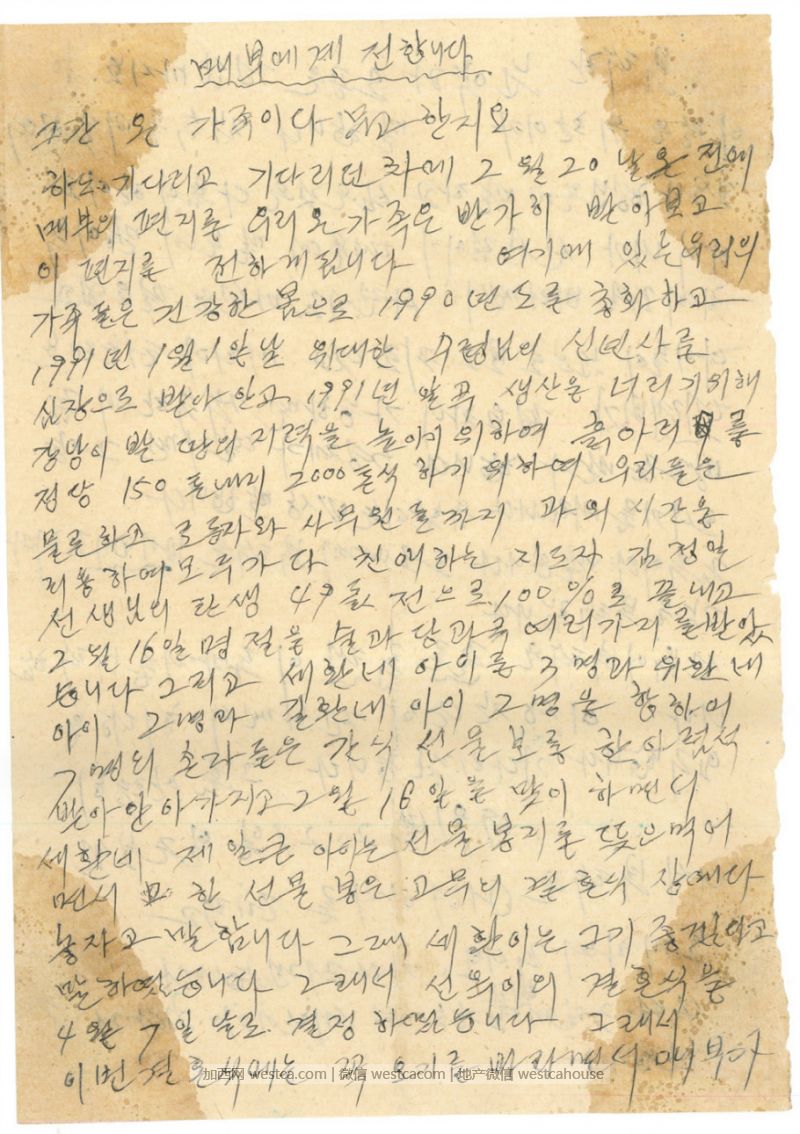 매부에게 전합니다.
그간 온 가족이 다 무고한지요.
하도 기다리고 기다리던 차에 2월 20날 온 전에
매부의 편지를 우리 온 가족은 반가히 받아보고
이 편지를 전하게 됩니다 여기에 있는 우리의
가족들은 건강한 몸으로 1990년도를 총화하고
1991년 1월 1일날 위대한 수령님의 신년사를
심장으로 받아 안고 1991년 알곡 생산을 너리기 위해
강냉이 밭 땅의 지력을 높이기 위하여 흙아리를
정당 150톤내지 2000톤식 하기 위하여 우리들은
물론하고 로동자와 사무원들까지 과외 시간을
리용하여 모두가 다 친애하는 지도자 김정일
선생님의 탄생 49돐 전으로 100%로 끝내고
2월 16일 명절을 술과 당과류 여러가지를 받았
습니다 그리고 세환네 아이를 3명과 위환네
아이 2명과 길환네 아이 2명을 합하여
7명의 손자들은 간식 선물보를 한아럼식
받아안아가지고 2월 16일을 맞이 하면서
세환네 제일큰 아이는 선물봉지를 뜾으며
면서 한 선물봉은 고무의 결혼식 상에다
놓자고 말합니다 그때 세환이는 그기 좋겠다고
말하였습니다 그래서 선옥이의 결혼식을
4월 7일 날로 결정 하였습니다 그래서
이번 결혼식에는 꼭 오기를 바라면서 매부가
加西网 westca.com | 微信 westcacom | 地产微信 westcahouse